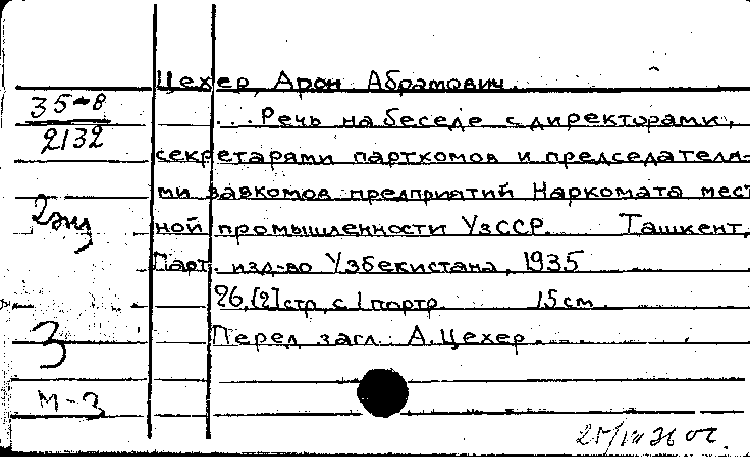 Цехер, Арон Абрамович.
35-8
2132
...Речь на беседе с директорами,
секретарями парткомов и председателя-
ми завкомов предприятий Наркомата мест
2 экз
ной промышленности УзССР. Ташкент,
Парт. изд-во Узбекистана, 1935
26,[2] стр, с 1 портр. 15 см.
Перед загл.: А. Цехер.
3
М-3